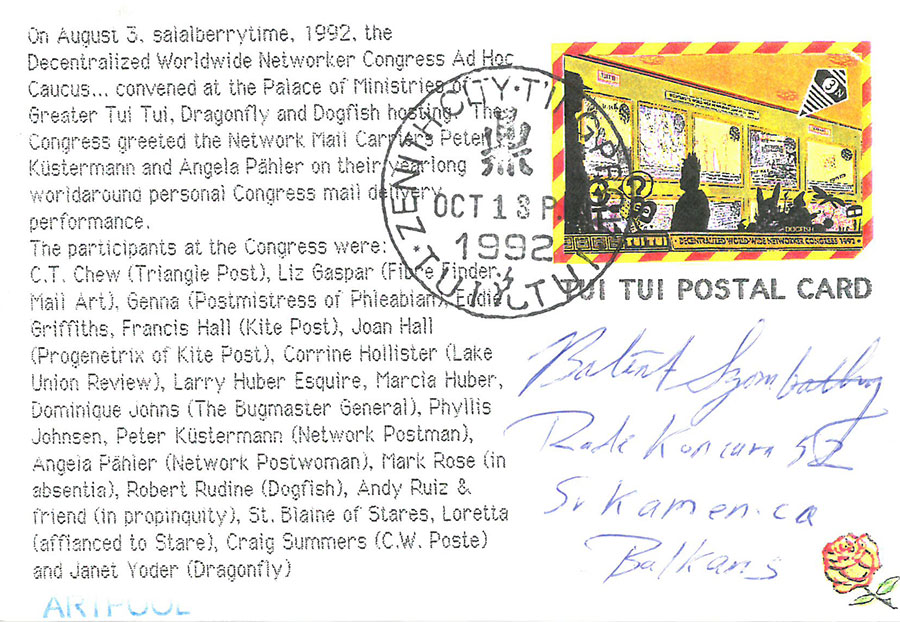 On August 3, saialberrytime, 1992, the
Decentralized Worldwide Networker Congress Ad Hoc
Caucus... convened at the Palace of Ministries of
Greater Tui Tui, Dragonfly and Dogfish hosting. The
Congress greeted the Network Mail Carriers Peter
Küstermann and Angela Pähler on their yearlong
worldaround personal Congress mail delivery
performance.
The participants at the Congress were:
C.T. Chew (Triangle Post), Liz Gaspar (Fibre Finder
Mail Art), Genna (Postmistress of Phleabian), Eddie
Griffiths, Francis Hall (Kite Post), Joan Hall
(Progenetrix of Kite Post), Corrine Hollister (Lake
Union Review), Larry Huber Esquire, Marcia Huber,
Dominique Johns (The Bugmaster General), Phyllis
Johnsen, Peter Küstermann (Network Postman),
Angela Pähler (Network Postwoman), Mark Rose (in
absentia), Robert Rudine (Dogfish), Andy Ruiz &
friend (in propinquity), St. Blaine of Stares, Loretta
(affianced to Stare), Craig Summers (C.W. Poste)
and Janet Yoder (Dragonfly)
ARTPOOL
OCT 13 P.
1992
3
DOGFISH
TUI TUI · DECENTRALIZED WORLDWIDE NETWORKER CONGRESS 1992 ·
TUI TUI POSTAL CARD
Balint Szombathy
Rade Koncara 52
Sr Kamenica
Balkans